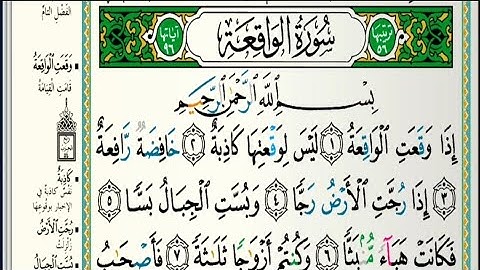 ترتيبها ٥٦
سُورَةُ الْوَاقِعَةِ
آياتها ٩٦
بِسْمِ اللَّهِ الرَّحْمَٰنِ الرَّحِيمِ
إِذَا وَقَعَتِ الْوَاقِعَةُ ١ لَيْسَ لِوَقْعَتِهَا كَاذِبَةٌ ٢ خَافِضَةٌ رَّافِعَةٌ
٣ إِذَا رُجَّتِ الْأَرْضُ رَجًّا ٤ وَبُسَّتِ الْجِبَالُ بَسًّا ٥
فَكَانَتْ هَبَاءً مُّنۢبَثًّا ٦ وَكُنتُمْ أَزْوَاجًا ثَلَاثَةً ٧ فَأَصْحَابُ
الفَضْلِ التَّامِّ
▪ وَقَعَتِ الْوَاقِعَةُ
قَامَتِ الْقِيَامَةُ
▪ كَاذِبَةٌ
نَفْسٌ كاذبة في
الإخبار بوقوعها
▪ رُجَّتِ الْأَرْضُ
زُلْزِلَتْ
▪ بُسَّتِ الْجِبَالُ